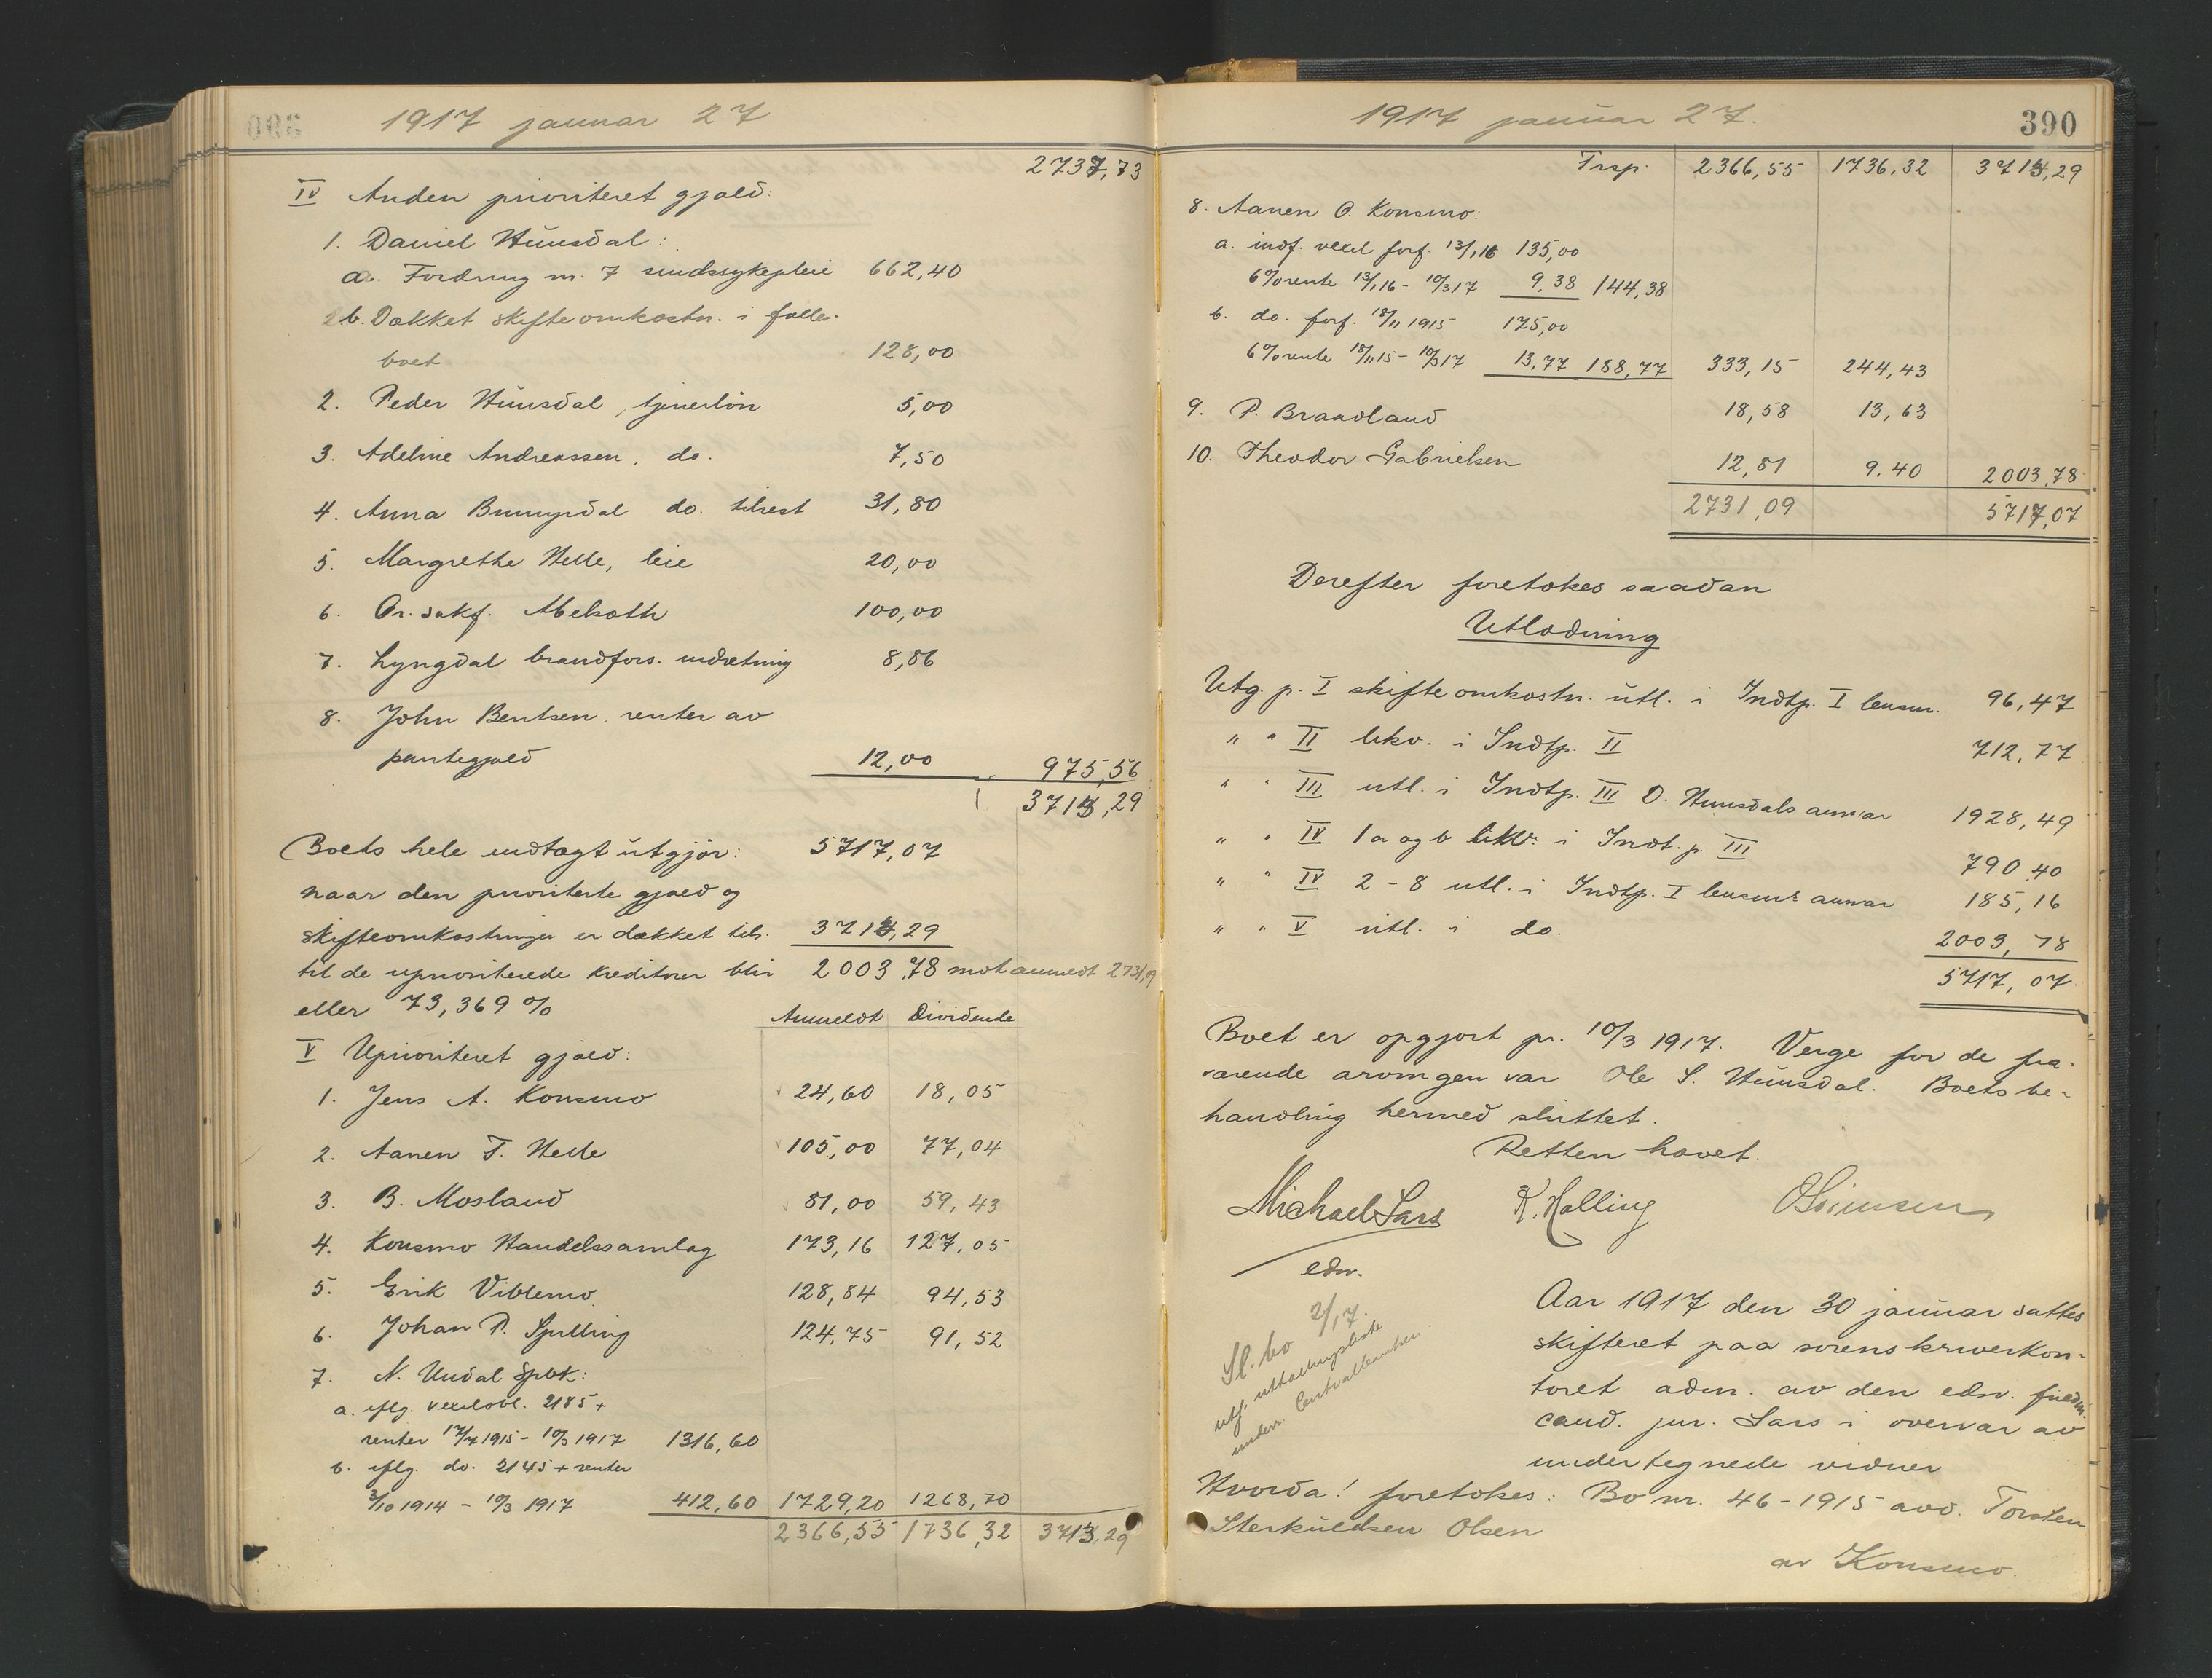 1917 januar 27
2737,73
IV Anden prioriteret gjæld:
1. Daniel Huusdal:
a. Fordring m. 7 sindssykepleie 662,40
b. Dækket skifteomkostn. i fælles-
boet 128,00
2. Peder Huusdal, tjenerløn 5,00
3. Adeline Andreassen, do. 7,50
4. Anna do. tilrest 31,80
5. Margrethe Helle, leie 20,00
6. Or. sakf. Abelsoth 100,00
7. Lyngdal brandfors. indretning 8,86
8. John Bentsen. renter av
pantegjæld 12,00 975,56
3713,29
Boets hele indtægt utgjør: 5717,07
naar den prioriterte gjæld og
skifteomkostninger er dækket tils. 3713,29
til de uprioriterede kreditorer blir 2003,78 mot anmeldt 2731,09
eller 73,369 %
Anmeldt Dividende
V Uprioriteret gjæld:
1. Jens A. Konsmo 24,60 18,05
2. Aanen T. Helle 105,00 77,04
3. B. Mosland 81,00 59,43
4. Konsmo Handelssamlag 173,16 127,05
5. Erik Viblemo 128,84 94,53
6. Johan P. Spilling 124,75 91,52
7. N. Undal Spbk:
a. iflg. vexelobl. 2185 +
renter 17/7 1915 - 10/3 1917 1316,60
b. iflg. do. 2145 + renter
3/10 1914 - 10/3 1917 412,60 1729,20 1268,70
2366,55 1736,32 3713,29
1917 januar 27.
390
Trsp. 2366,55 1736,32 3713,29
8. Aanen O. Konsmo:
a. indf. vexel forf. 13/1 16 135,00
6% rente 13/1 16 - 10/3 17 9,38 144,38
b. do. forf. 18/11 1915 175,00
6% rente 18/11 15 - 10/3 17 13,77 188,77 333,15 244,43
9. P. Braadland 18,58 13,63
10. Theodor Gabrielsen 12,81 9,40 2003,78
2731,09 5717,07
Derefter foretokes saadan
Utlodning
Utg. p. I skifteomkostn. utl. i Indtp. I lensm. 96,47
" " II likv. i Indtp. II 712,77
" " III utl. i Indtp. III D. Huusdals ansvar 1928,49
" " IV 1 a og b likv: i Indt. p. III 790,40
" " IV 2 - 8 utl. i Indtp. I lensms ansvar 185,16
" " V utl. i do. 2003,78
5717,07
Boet er opgjort pr. 10/3 1917. Verge for de fra-
værende arvinger var Ole S. Huusdal. Boets be-
handling hermed sluttet.
Retten hævet.
Michael Sars K. Halling
edsv.
Sl. bo 2/17.
utf. utbetalingsliste
underr. Centralbanken.
Aar 1917 den 30 januar sattes
skifteret paa sorenskriverkon-
toret adm. av den edsv. fuldm.
cand. jur. Sars i overvær av
undertegnede vidner
Hvorda! foretokes: Bo nr. 46 - 1915 avd. Torsten
Sterkuldsen Olsen
av Konsmo.